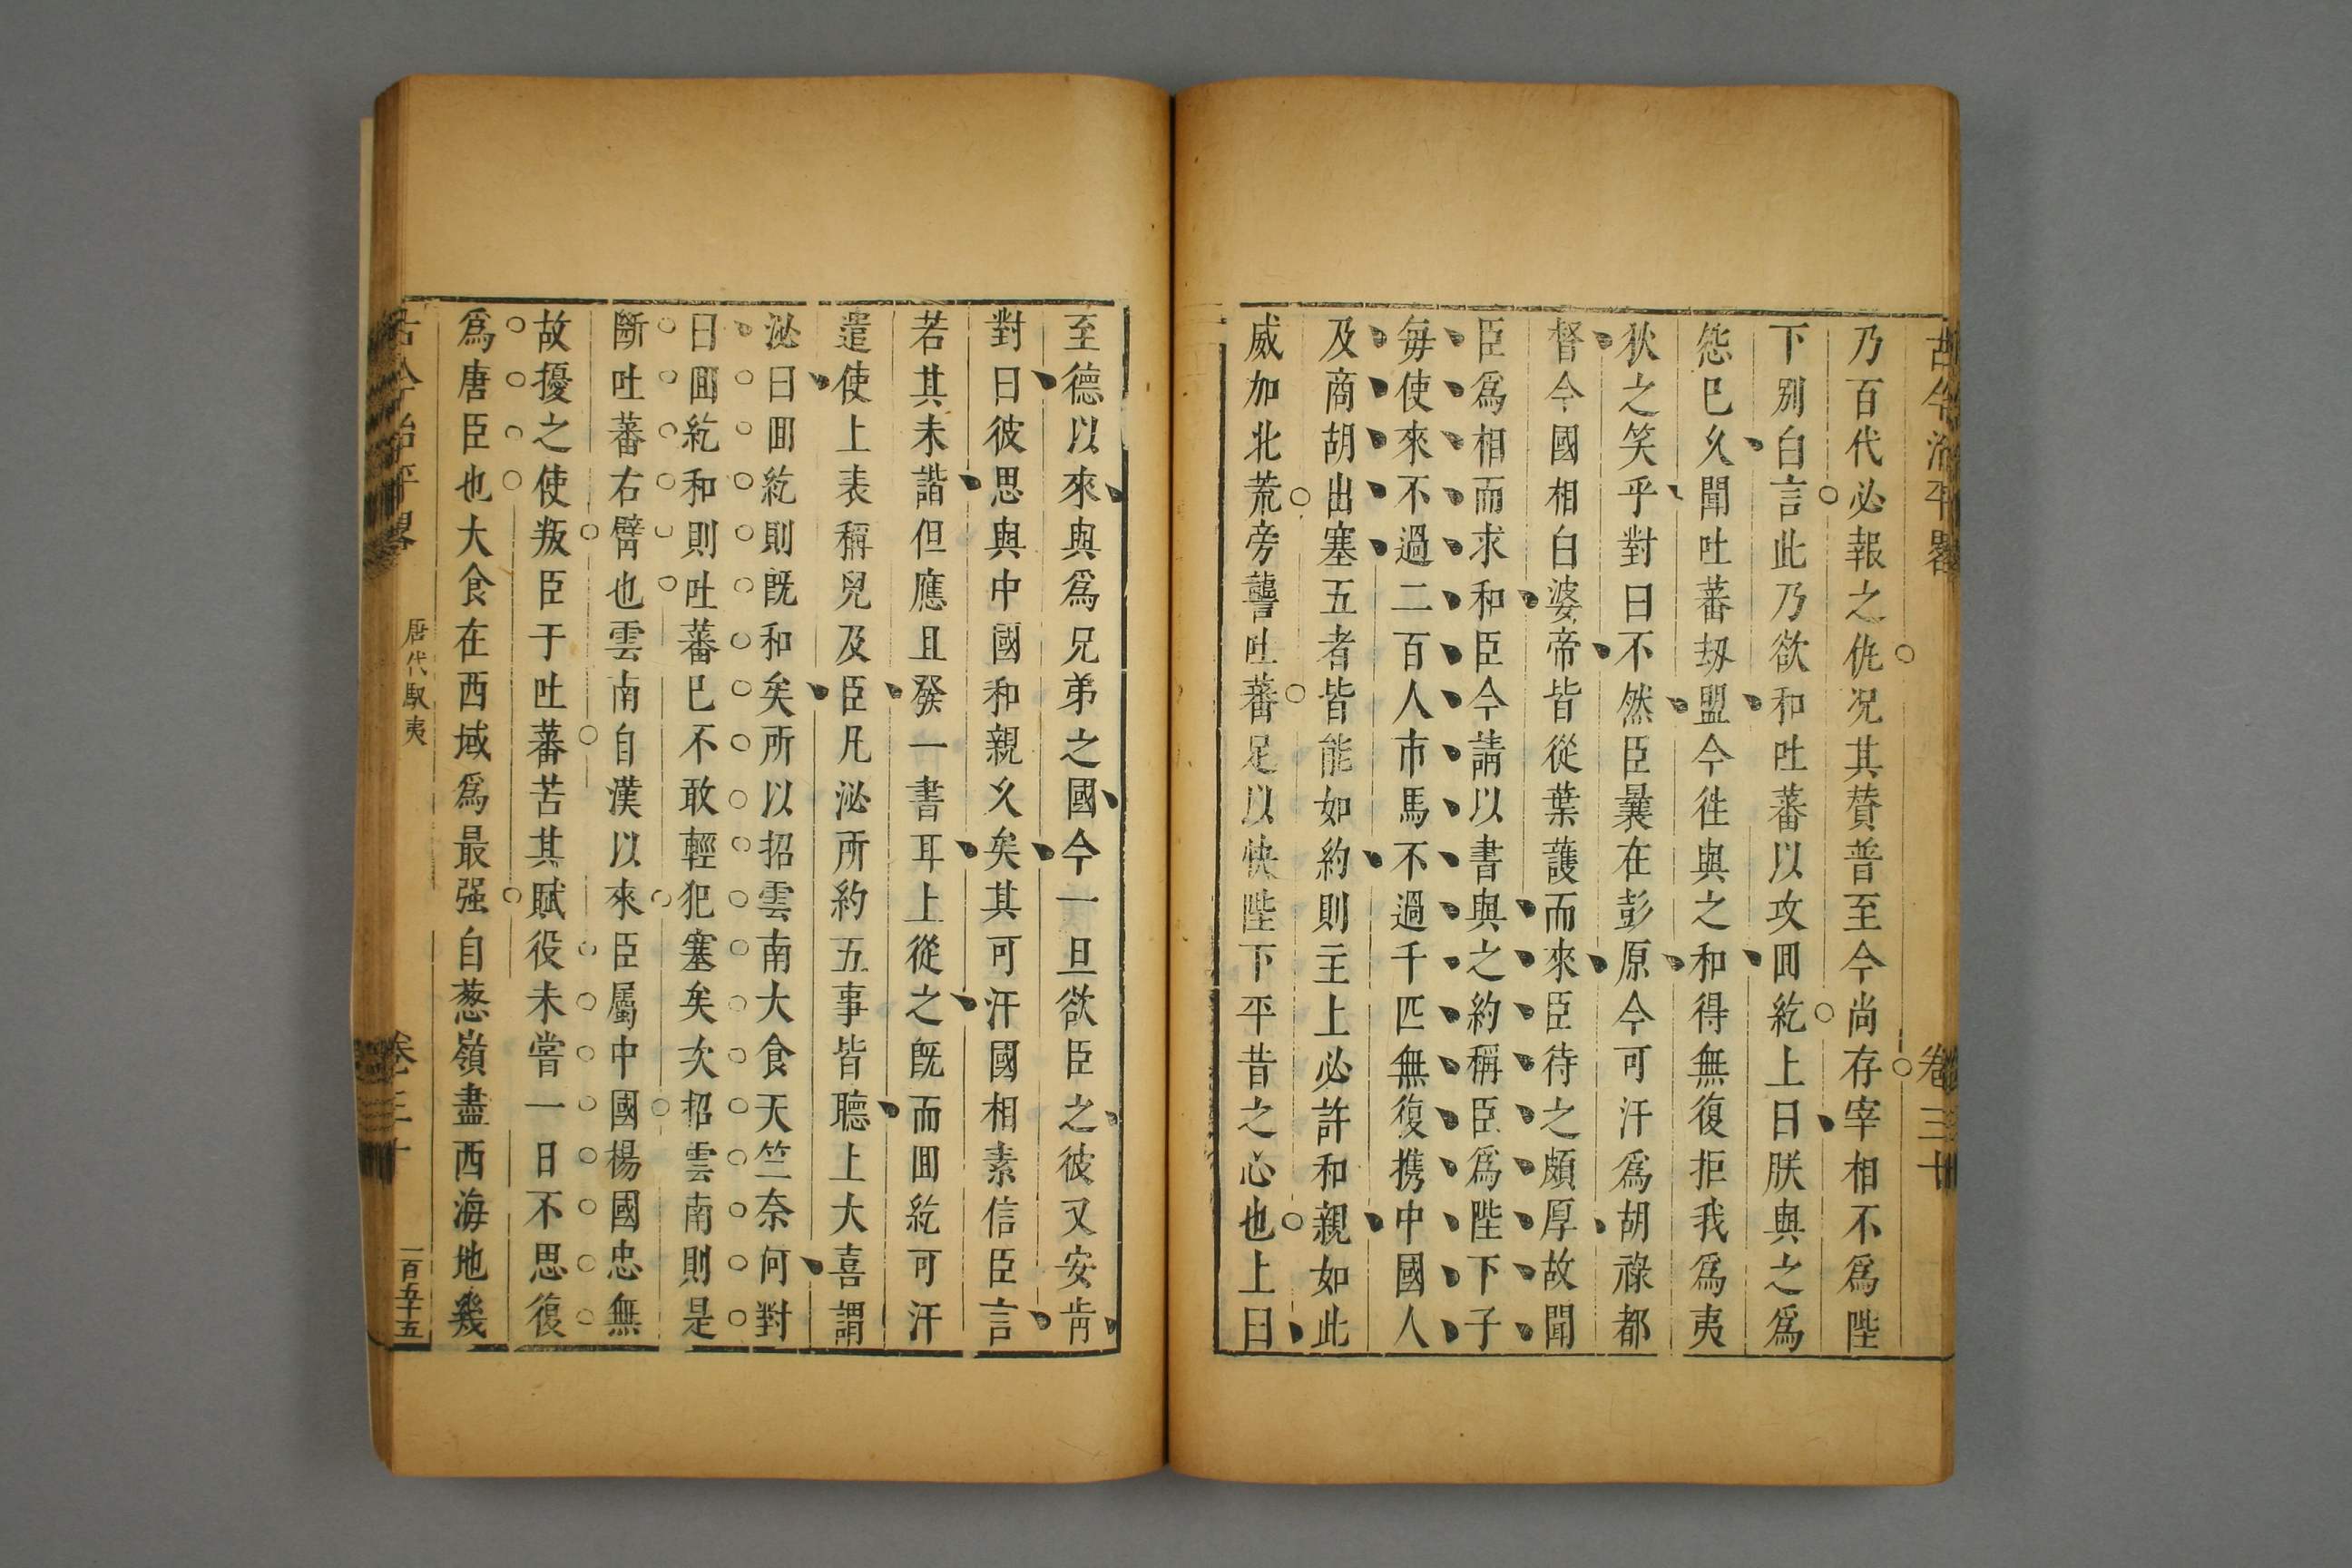 古今治平畧 卷三十
乃百代必報之仇況其贊普至今尚存宰相不爲陛
下別白言此乃欲和吐蕃以攻囬紇上曰朕與之爲
怨巳久聞吐蕃刼盟今徃與之和得無復拒我爲夷
狄之笑乎對曰不然臣曩在彭原今可汗爲胡祿都
督今國相白婆帝皆從葉護而來臣待之頗厚故聞
臣爲相而求和臣今請以書與之約稱臣爲陛下子
每使來不過二百人市馬不過千匹無復携中國人
及商胡出塞五者皆能如約則主上必許和親如此
威加北荒旁讋吐蕃足以快陛下平昔之心也上曰
至德以來與爲兄弟之國今一旦欲臣之彼又安肯
對曰彼思與中國和親久矣其可汗國相素信臣言
若其未諧但應且發一書耳上從之旣而囬紇可汗
遣使上表稱兒及臣凡泌所約五事皆聽上大喜謂
泌曰囬紇則旣和矣所以招雲南大食天竺奈何對
曰囬紇和則吐蕃巳不敢輕犯塞矣次招雲南則是
斷吐蕃右臂也雲南自漢以來臣屬中國楊國忠無
故擾之使叛臣于吐蕃苦其賦役未嘗一日不思復
爲唐臣也大食在西域爲最强自葱嶺盡西海地幾
古今治平畧 唐代馭夷 卷三十 一百五十五